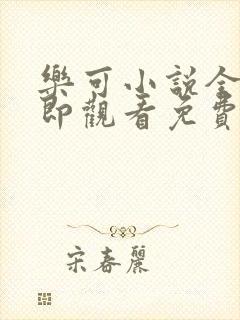 樂可小説全
即觀看免費
宋春麗